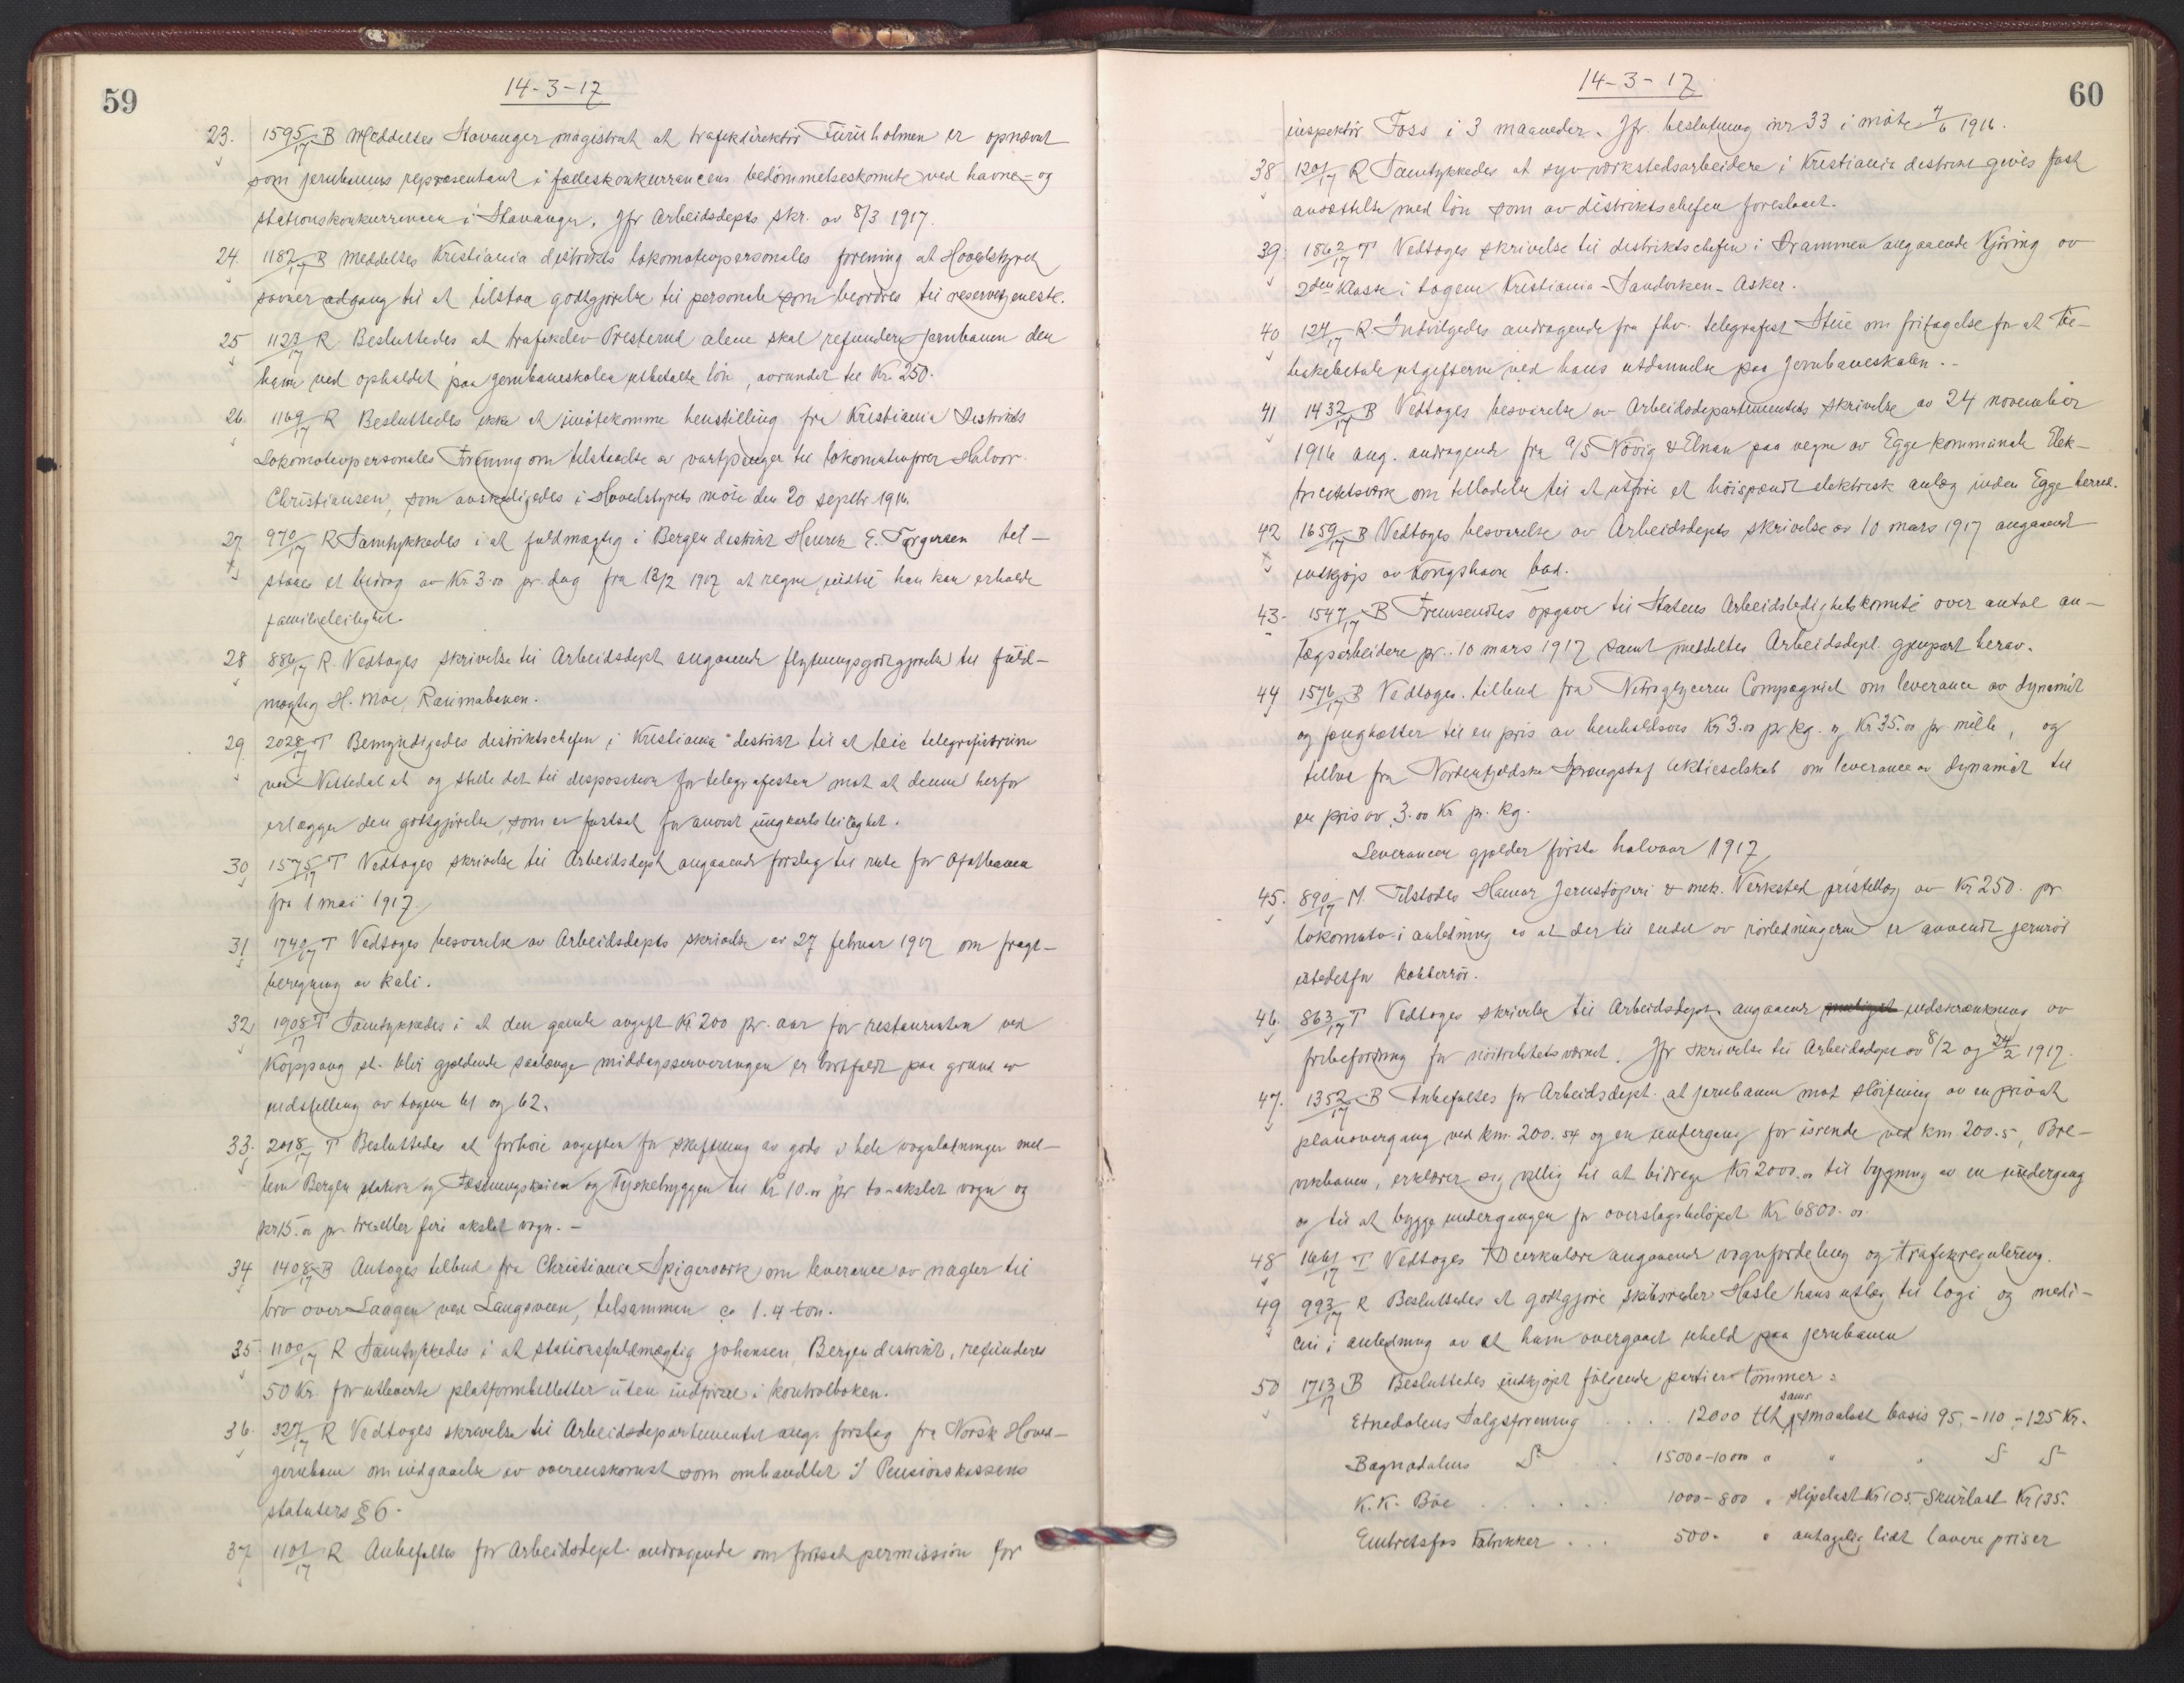 59
14-3-17
23. 1595/17 B Meddeltes Stavanger magistrat at trafikdirektör Furuholmen er opnævnt
som jernbanens repræsentant i fælleskonkurrancens bedömmelseskomite ved havne- og
stationskonkurrencen i Stavanger. Jfr Arbeidsdepts skr. av 8/3 1917.
24. 1182/17 B Meddeltes Kristiania distrikts lokomotivpersonales forening at Hovedstyret
savner adgang til at tilstaa godtgjörelse til personale som beordres til reservetjeneste.
25 1123/17 R Besluttedes at trafikelev Presterud alene skal refundere jernbanen den
ham ved opholdet paa jernbaneskolen utbetalte lön, avrundet til Kr. 250.
26. 1169/17 R Besluttedes ikke at imötekomme henstilling fra Kristiania Distrikts
Lokomotivpersonales Forening om tilstaaelse av vartpenger til lokomotivfører Halvor
Christiansen, som avskedigedes i Hovedstyrets möte den 20 septbr 1916.
27. 970/17 R Samtykkedes i at fuldmægtig i Bergen distrikt Henrik E. Torgersen til-
staaes et bidrag av Kr 3.00 pr. dag fra 13/2 1917 at regne indtil han kan erholde
familieleilighet.
28 886/17 R. Vedtoges skrivelse til Arbeidsdept angaaende flytningsgodtgjörelse til fuld-
mægtig H. Moe, Raumabanen.
29. 2028/17 T Bemyndigedes distriktschefen i Kristiania distrikt til at leie telegrafistrum
ved Nittedal st og stille det til disposition for telegrafisten mot at denne herfor
erlægger den godtgjörelse, som er fastsat for anvist ungkarls leilighet.
30 1575/17 T Vedtoges skrivelse til Arbeidsdept angaaende forslag til rute for Ofotbanen
fra 1 mai 1917.
31 1740/17 T Vedtoges besvarelse av Arbeidsdepts skrivelse av 27 februar 1917 om fragt-
beregning av kali.
32 1908/17 T Samtykkedes i at den gamle avgift Kr 200 pr. aar for restauranten ved
Koppang st. blir gjældende saalænge middagsserveringen er bortfaldt paa grund av
indstilling av togene 61 og 62.
33. 2018/17 T Besluttedes at forhöie avgiften for skiftning av gods i hele vognladninger mel-
lem Bergen station og Fæstningskaien og Tyskebryggen til Kr 10.00 pr to-akslet vogn og
kr 15.00 pr. tre eller fire akslet vogn. -
34 1408/17 B Antoges tilbud fra Christiania Spigerverk om leverance av nagler til
bro over Laagen ved Langeveien, tilsammen ca 1.4 ton.
35 1100/17 R Samtykkedes i at stationsfuldmægtig Johansen, Bergen distrikt, refunderes
50 Kr. for utleverte platformbilletter uten indförsel i kontrolboken.
36. 327/17 R Vedtoges skrivelse til Arbeidsdepartementet ang. forslag fra Norsk Hoved-
jernbane om indgaaelse av overenskomst som omhandlet i Pensionskassens
statuters § 6.
37 1101/17 R Anbefaltes for Arbeidsdept. andragende om fortsat permission for
60
14-3-17
inspektör Foss i 3 maaneder. Jfr. beslutning nr 33 i möte 7/6 1916.
38 1201/17 R Samtykkedes at syv verkstedsarbeidere i Kristiania distrikt gives fast
ansættelse med lön som av distriktschefen foreslaaet.
39. 1862/17 T Vedtoges skrivelse til distriktschefen i Drammen angaaende kjöring av
2den klasse i togene Kristiania-Sandviken-Asker.
40 127/17 R Indvilgedes andragende fra fhv. telegrafist Stue om fritagelse for at til-
bakebetale utgifterne ved hans utdannelse paa jernbaneskolen. -
41 1432/17 B Vedtoges besvarelse av Arbeidsdepartementets skrivelse av 24 november
1916 ang. andragende fra A/S Növig & Elnan paa vegne av Egge kommunale Elek-
tricitetsverk om tilladelse til at utföre et höispændt elektrisk anlæg inden Egge herred.
42 1659/17 B Vedtoges besvarelse av Arbeidsdepts skrivelse av 10 mars 1917 angaaende
indkjöp av Kongshavn bad.
43. 1547/17 B Fremsendtes opgave til Statens Arbeidsledighetskomité over antal an-
lægsarbeidere pr. 10 mars 1917 samt meddeltes Arbeidsdept. gjenpart herav.
44 1576/17 B Vedtoges tilbud fra Nitroglycerin Compagniet om leverance av dynamit
og fænghætter til en pris av henholdsvis Kr 3.00 pr kg. og Kr 35.00 pr. mille, og
tilbud fra Nordenfjeldske Sprængstof Aktieselskab om leverance av dynamit til
en pris av 3.00 Kr pr. kg.
Leverancen gjælder förste halvaar 1917
45. 890/17 M. Tilstodes Hamar Jernstöperi & mek. Verksted pristillæg av Kr 250. pr
lokomotiv i anledning av at der til endel av rörledningerne er anvendt jernrör
istedetfor kobberrör.
46. 863/17 T Vedtoges skrivelse til Arbeidsdept angaaende indskrænkning av
fribefordring for nöitralitetsvernet. Jfr skrivelse til Arbeidsdept av 8/2 og 24/2 1917.
47. 1352/17 B Anbefaltes for Arbeidsdept. at jernbanen mot slöifning av en privat
planovergang ved km. 200.54 og en undergang for isrende ved km 200.5, Bre-
viksbanen, erklærer sig villig til at bidrage Kr 2000.00 til bygning av en undergang
og til at bygge undergangen for overslagsbelöpet Kr 6800.00.
48 1661/17 T Vedtoges TD cirkulære angaaende vognfordeling og trafikregulering.
49 993/17 R Besluttedes at godtgjöre skibsreder Hasle hans utlæg til logi og medi-
cin i anledning av et ham overgaaet uheld paa jernbanen
50 1713/17 B Besluttedes indkjöpt fölgende partier tömmer:
Etnedalens Salgsforening .... 12000 tlt smaalast basis 95.-110.-125 Kr.
Bagnadalens 15000-10000 " " "
K.K. Böe ...... 1000-800 " slipelast Kr 105. Skurlast Kr 135.
Embretsfos Fabrikker ... 500. " antagelig lidt lavere priser